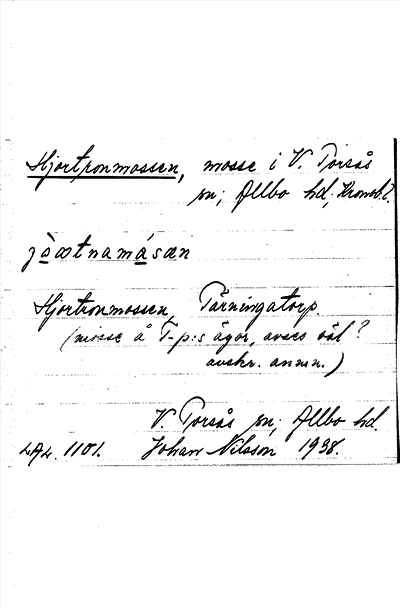 Hjortronmossen, mosse i V. Torsås
sn; Allbo hd; Kronob. l.
jò̱ætnamá̱sæn
Hjortronmossen, Tärningatorp
(mosse å T-p:s ägor, avses väl?
avskr. anm.)
V. Torsås sn; Allbo hd.
LAL. 1101. Johan Nilsson 1938.